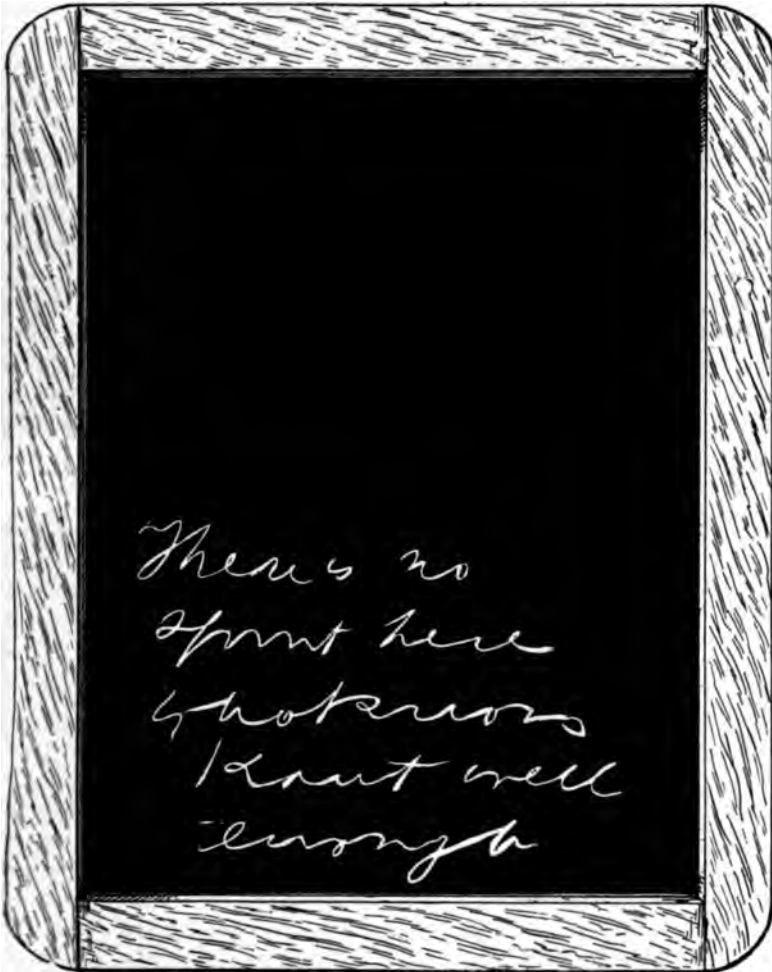 There is no
spirit here
who knows
Kant well
enough